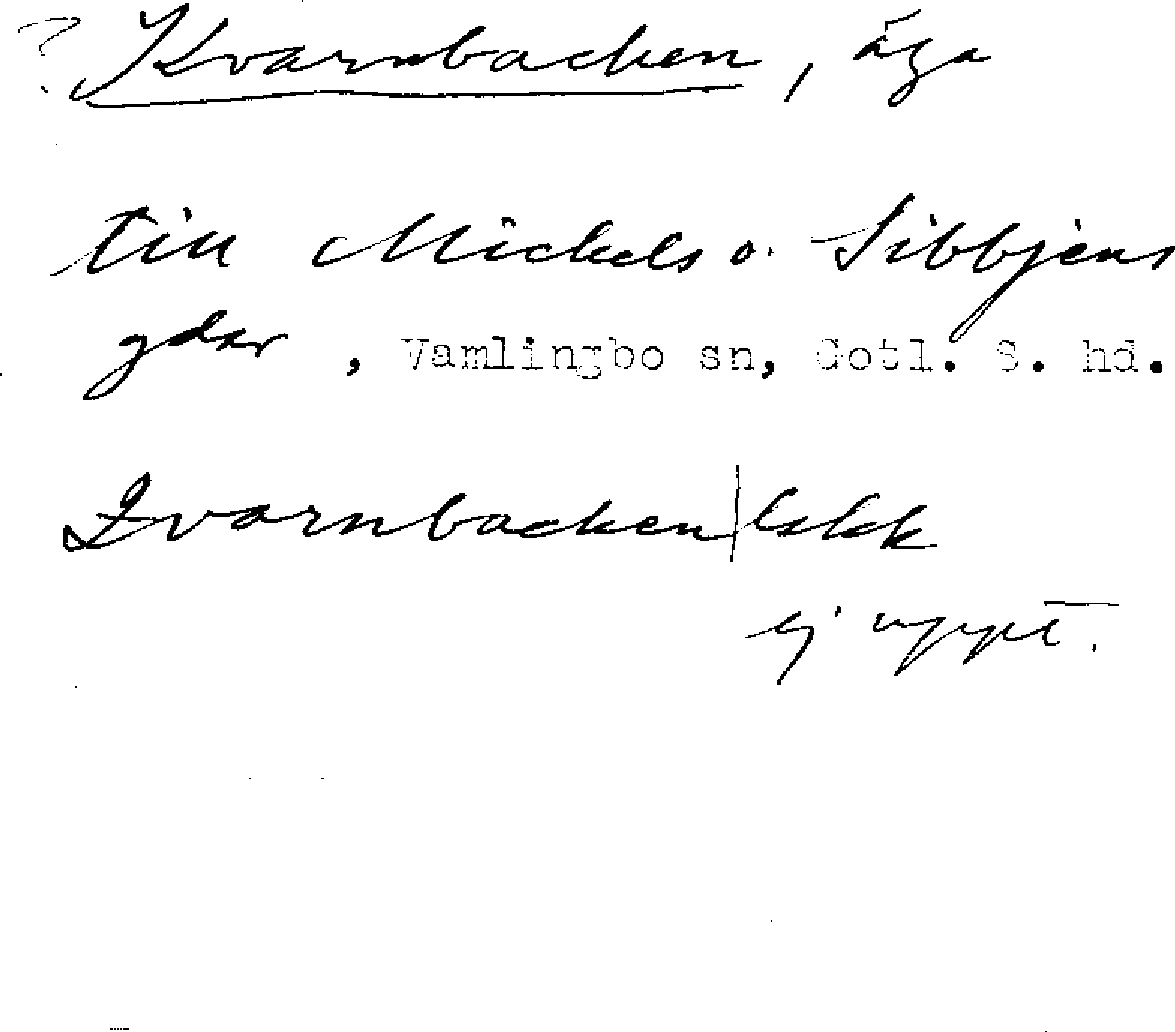 ? Kvarnbacken, äga
till Mickels o. Sibbjens
gdar, Vamlingbo sn, Gotl. S. hd.
Qvarnbacken | Lskk
ej uppt.